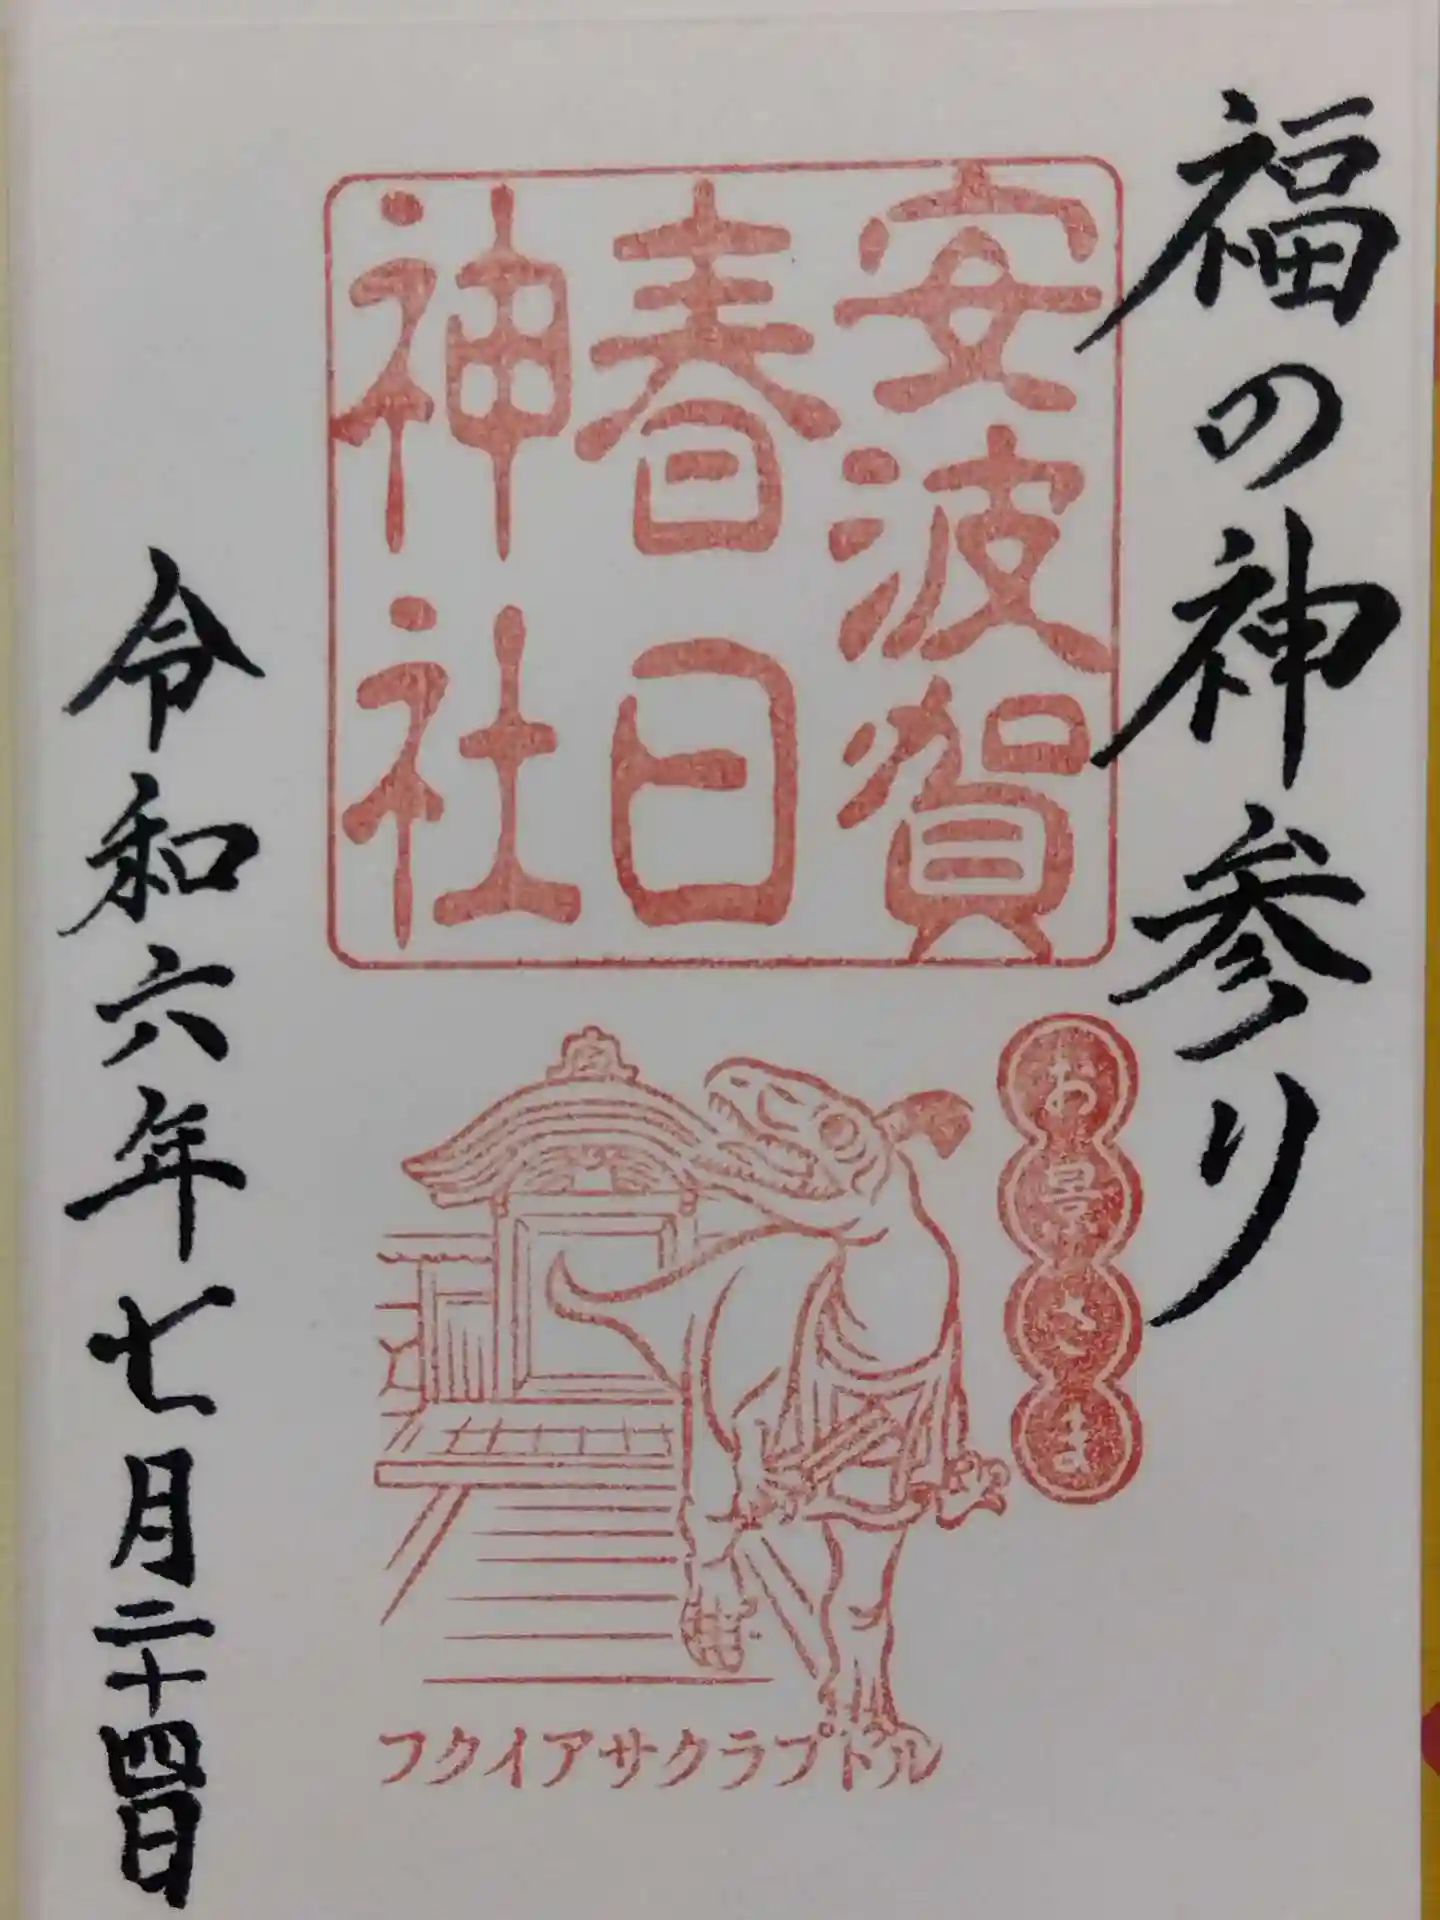 福の神参り
安波賀
春日
神社
お景さま
フクイアサクラプトル
令和六年七月二十四日